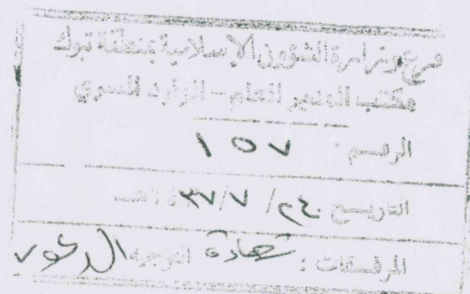 فرع وزارة الشؤون الإسلامية بمنطقة تبوك
مكتب المدير العام - الوارد السري
الرقم ١٥٧
التاريخ ٢٤ / ٧ / ٣٧ ١٤هـ
المرفقات : شهادة التوجيه